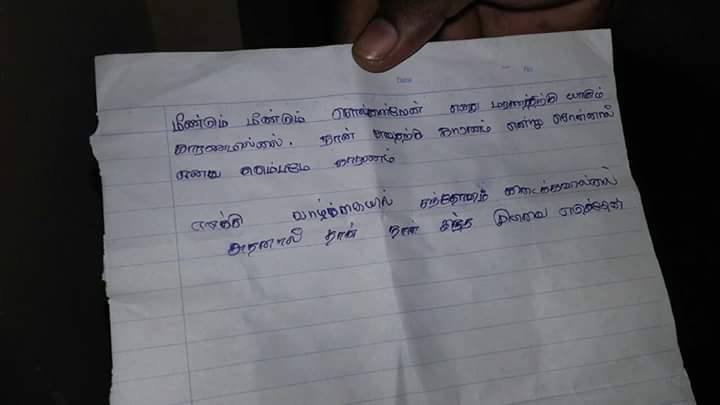 Date
No
மீண்டும் மீண்டும் சொல்கிறேன் எனது மரணத்திற்கு யாரும்
காரணமில்லை. நான் காரணம் என்று சொன்னால்
எனது குடும்பமே காரணம்
எனக்கு வாழ்க்கையில் சந்தோசம் கிடைக்கவில்லை
அதனால் தான் நான் இந்த முடிவை எடுத்தேன்